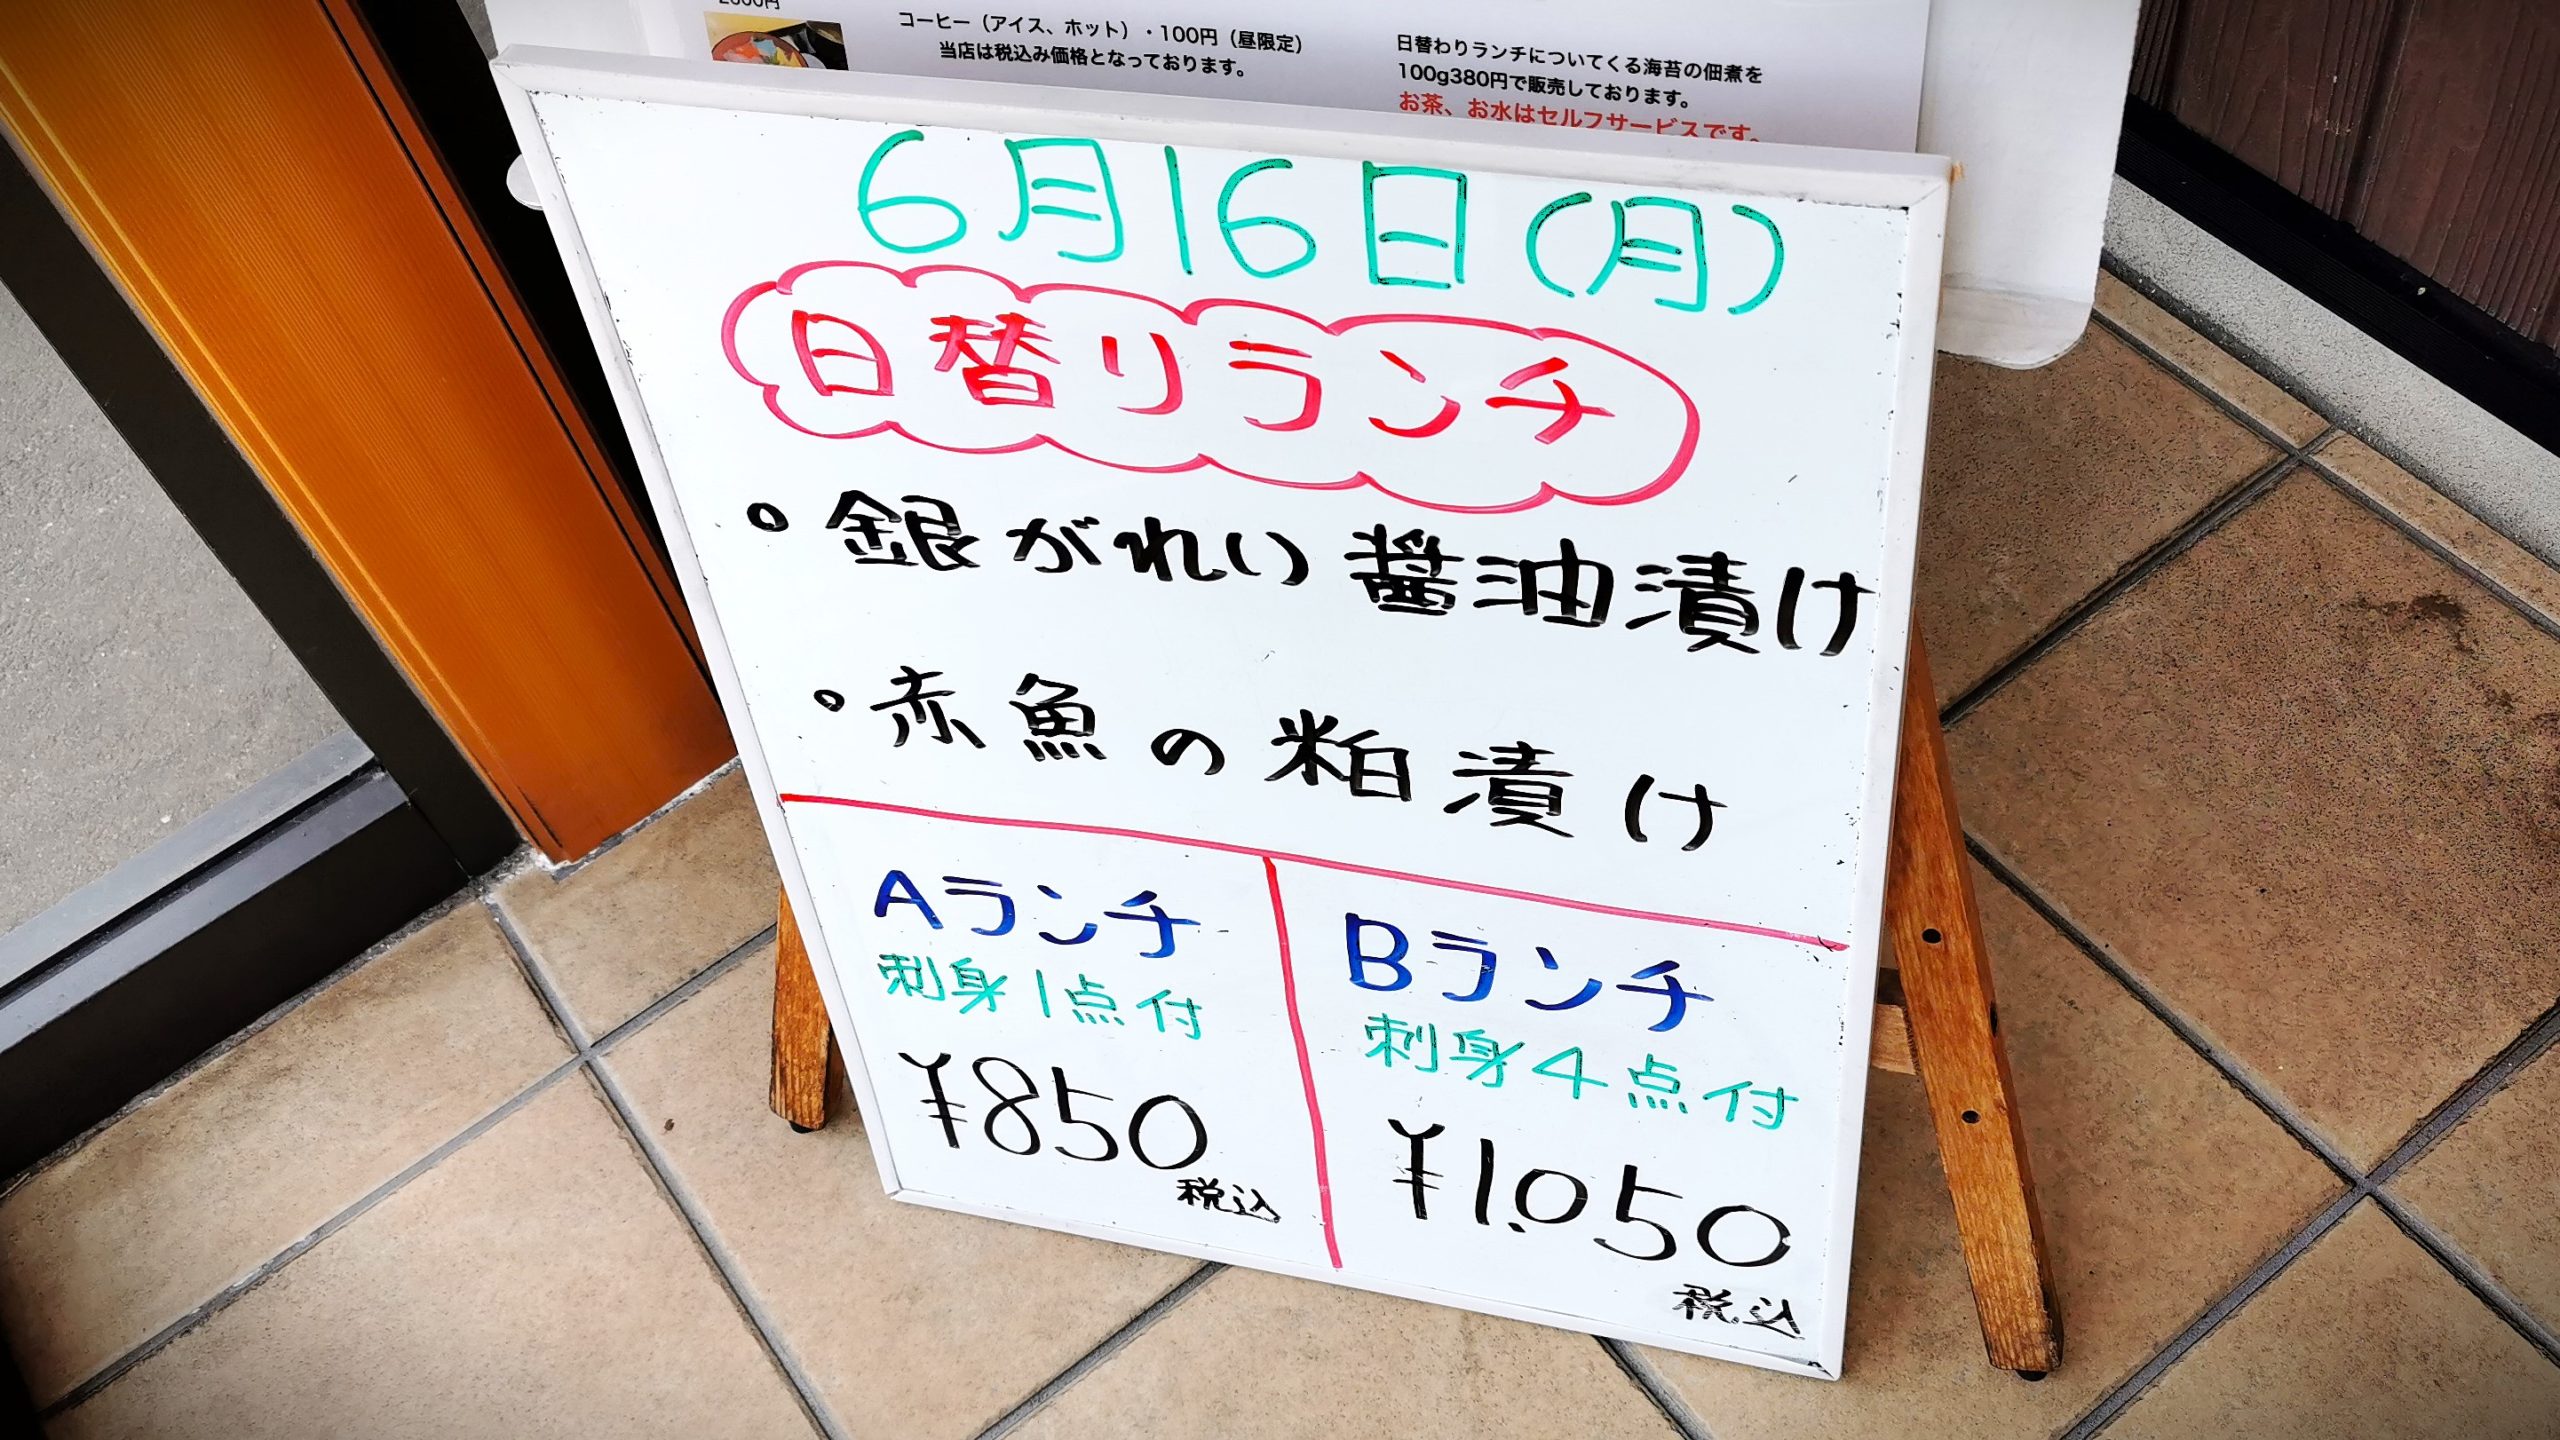 コーヒー（アイス、ホット）・100円（昼限定）
当店は税込み価格となっております。
日替わりランチについてくる海苔の佃煮を
100g380円で販売しております。
お茶、お水はセルフサービスです。
6月16日(月)
日替りランチ
。銀がれい醤油漬け
。赤魚の粕漬け
Aランチ
刺身1点付
¥850
税込
Bランチ
刺身4点付
¥1,050
税込